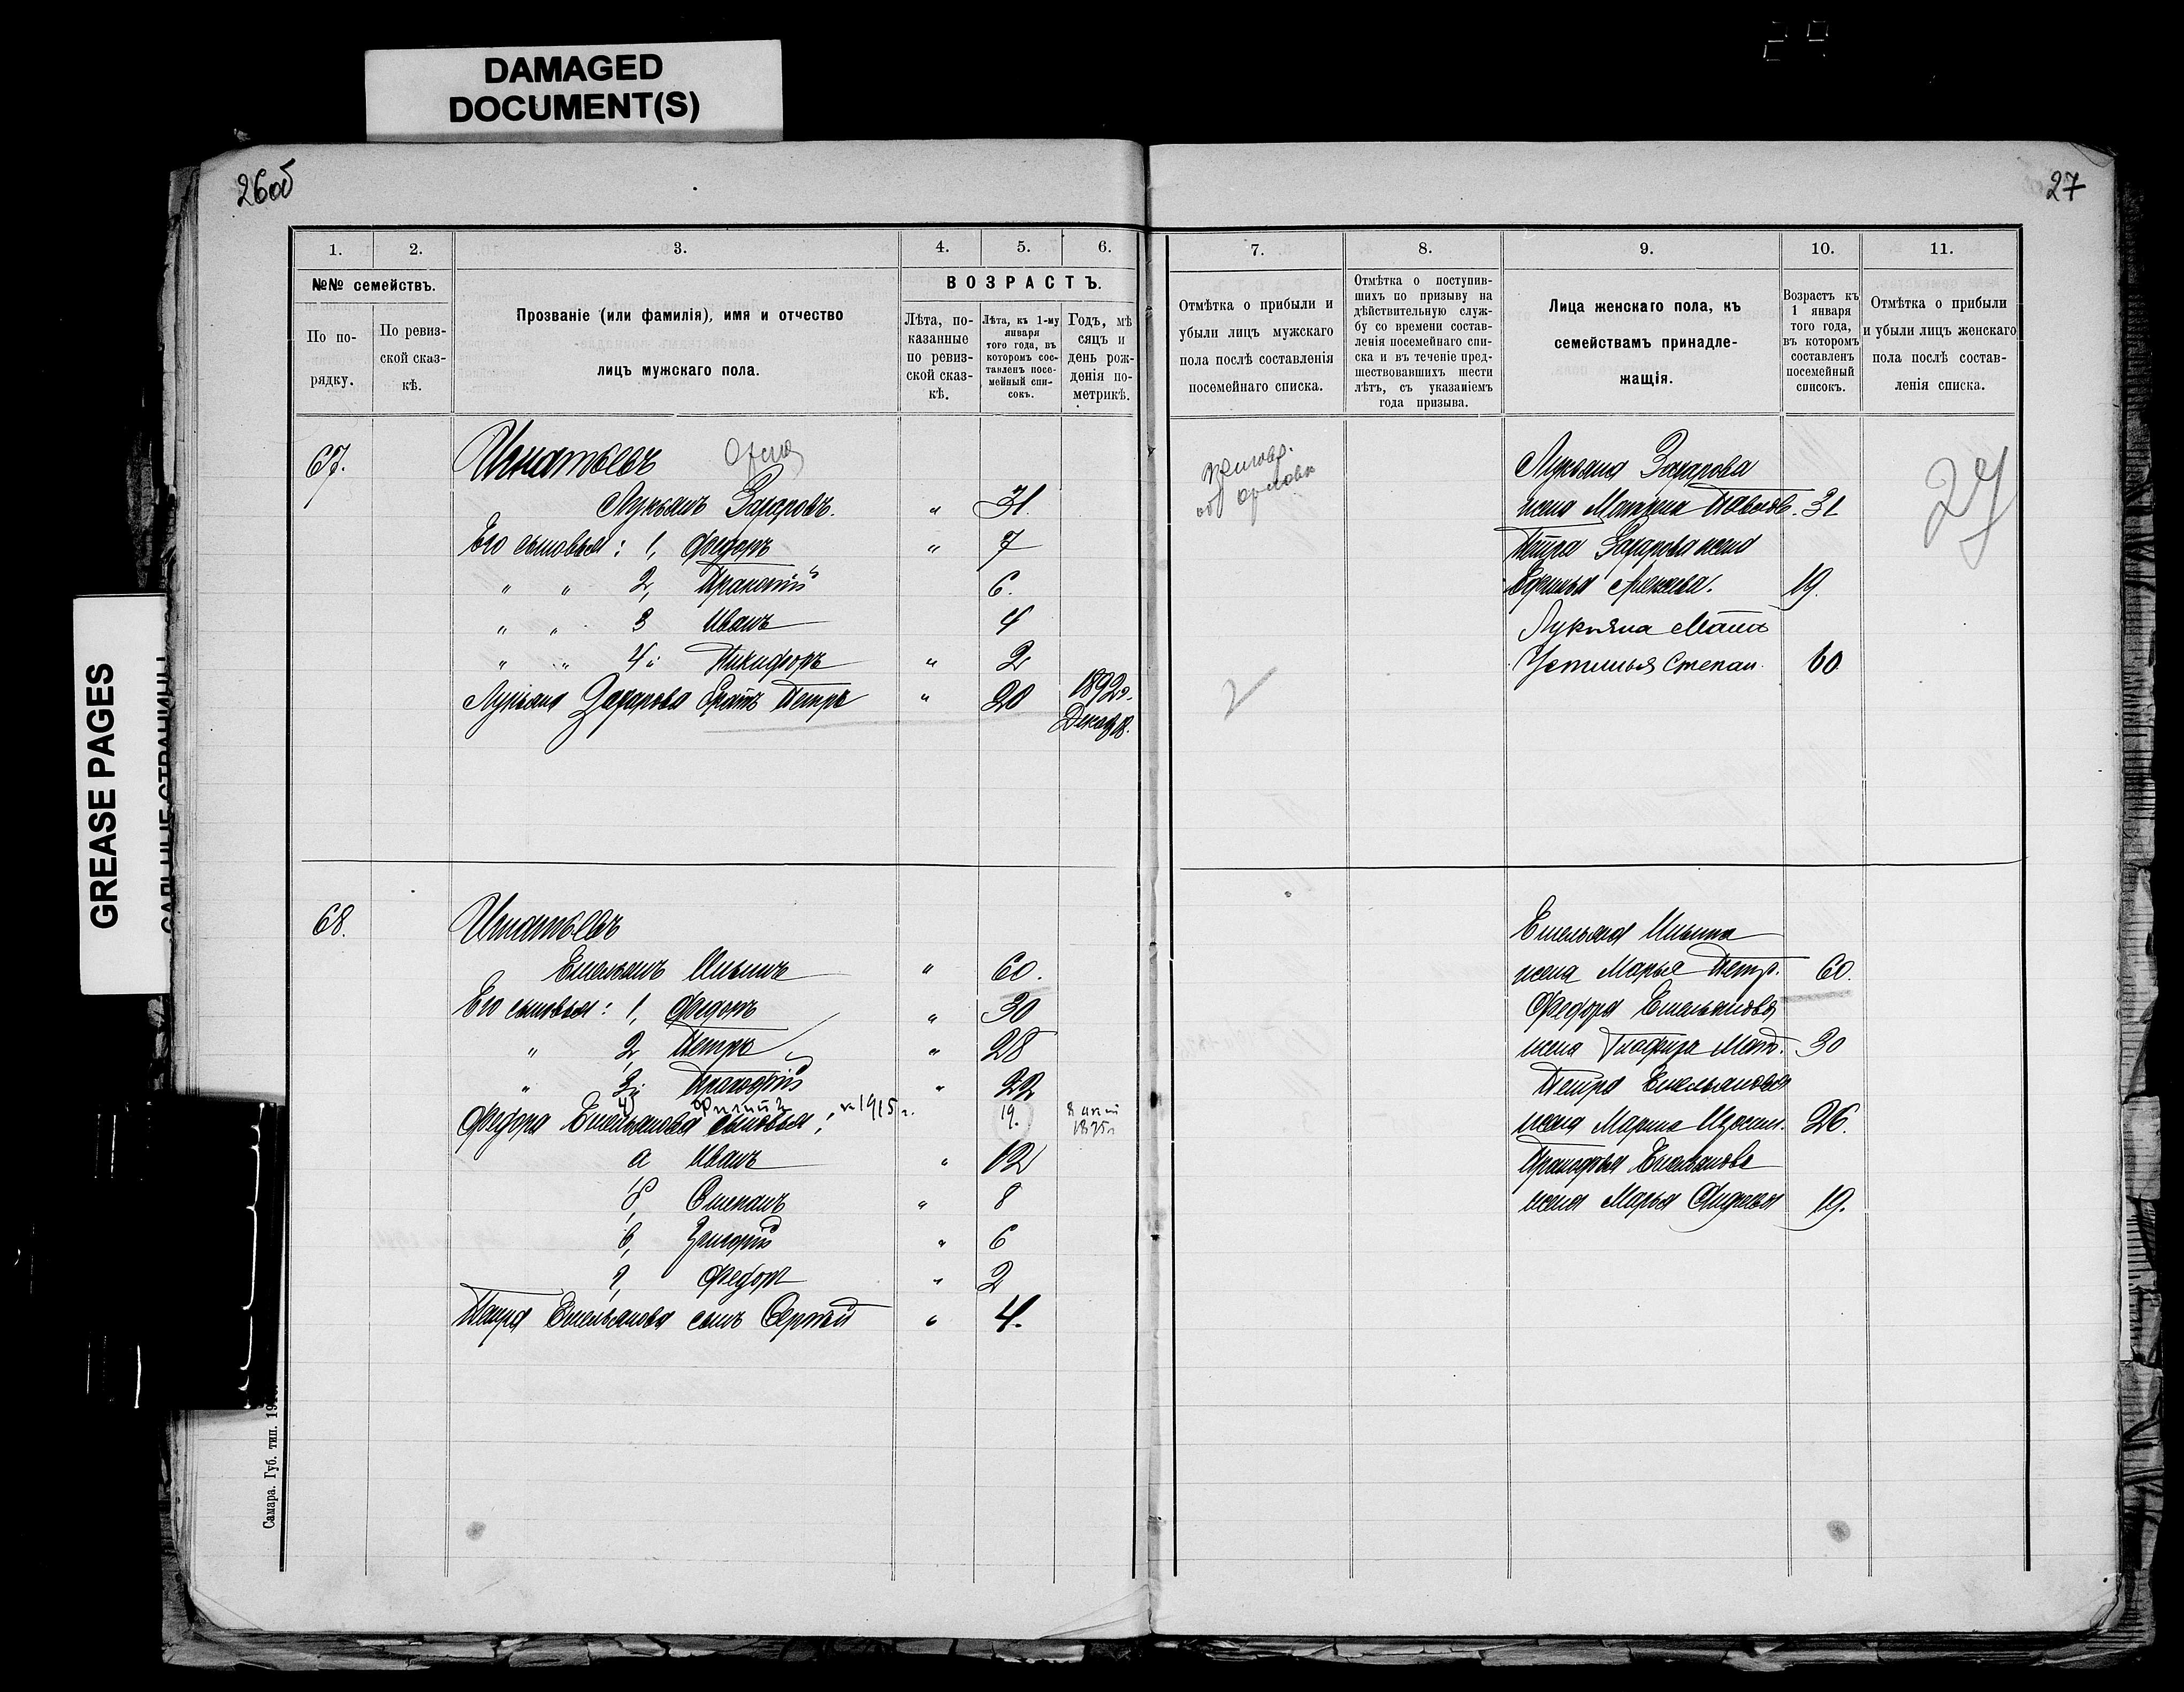 DAMAGED
DOCUMENT(S)
GREASE PAGES
26об
27
1. 2. 3. 4. 5. 6.
№№ семействъ.
По порядку.
По ревизской сказкѣ.
Прозваніе (или фамилія), имя и отчество
лицъ мужскаго пола.
ВОЗРАСТЪ.
Лѣта, по-
казанные
по ревиз-
ской сказ-
кѣ.
Лѣта, къ 1-му
января
того года, въ
которомъ сос-
тавленъ посе-
мейный спи-
сокъ.
Годъ, мѣ
сяцъ и
день рож-
денія по-
метрикѣ.
67.
Игнатьевъ
Лукьянъ Захаровъ. " 31.
Его сыновья: 1, Федоръ " 7
" " 2, Прокофій 6.
" " 3 Иванъ 4
" " 4, Никифоръ " 2
Лукьяна Захарова братъ Петръ " 20 1892г.
68.
Игнатьевъ
Емельянъ Ильинъ " 60.
Его сыновья: 1, Федоръ " 30
" 2, Петръ " 28
" 3, Прокофій " 22
4) Филипъ 1915 г. 19.
Федора Емельянова сыновья:
а Иванъ " 12
б, Степанъ " 8
в, Григорій " 6
г, Федоръ " 2
Петра Емельянова сынъ Сергѣй " 4.
Самара. Губ. тип.
7. 8. 9. 10. 11.
Отмѣтка о прибыли и
убыли лицъ мужскаго
пола послѣ составленія
посемейнаго списка.
Отмѣтка о поступив-
шихъ по призыву на
дѣйствительную служ-
бу со времени состав-
ленія посемейнаго спи-
ска и въ теченіе пред-
шествовавшихъ шести
лѣтъ, съ указаніемъ
года призыва.
Лица женскаго пола, къ
семействамъ принадле-
жащія.
Возрастъ къ
1 января
того года,
въ которомъ
составленъ
посемейный
списокъ.
Отмѣтка о прибыли
и убыли лицъ женскаго
пола послѣ состав-
ленія списка.
Лукьяна Захарова
27
жена Матрена Павлов. 31
Петра Захарова жена
19.
Лукьяна Мать
Устинья Степан. 60
2
Емельяна Ильина
жена Марья Петр. 60.
Федора Емельянова
жена 30
Петра Емельянова
жена Марина 26.
Прокофья Емельянова
жена Марья 19.